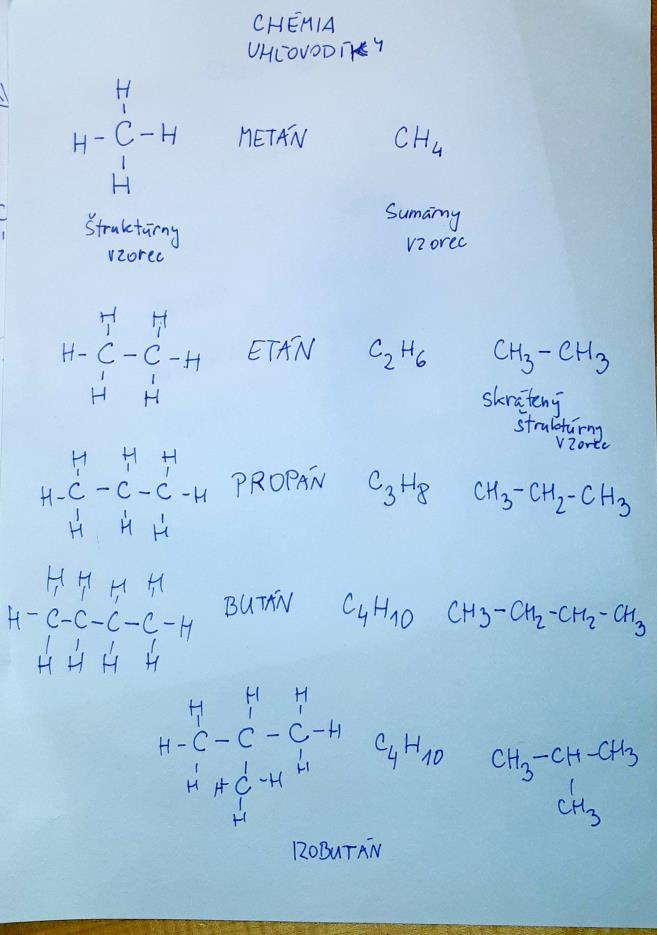 CHÉMIA
UHĽOVODÍKY
H
H-C-H METÁN CH4
H
Štruktúrny vzorec Sumárny vzorec
H H
H-C-C-H ETÁN C2H6 CH3-CH3
H H
Skrátený
štruktúrny
vzorec
H H H
H-C-C-C-H PROPÁN C3H8 CH3-CH2-CH3
H H H
H H H H
H-C-C-C-C-H BUTÁN C4H10 CH3-CH2-CH2-CH3
H H H H
H H H
H-C-C-C-H C4H10 CH3-CH-CH3
H H
H-C-H CH3
H
IZOBUTÁN